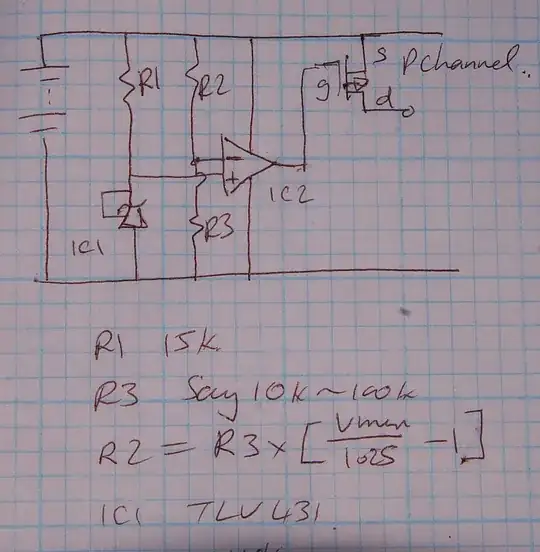 R1
R2
S
P channel..
g
d
-
+
IC2
IC1
R3
R1 15k
R3 Say 10k ~ 100k
R2 = R3 x [ Vmin / 1.025 - 1 ]
IC1 TLV431